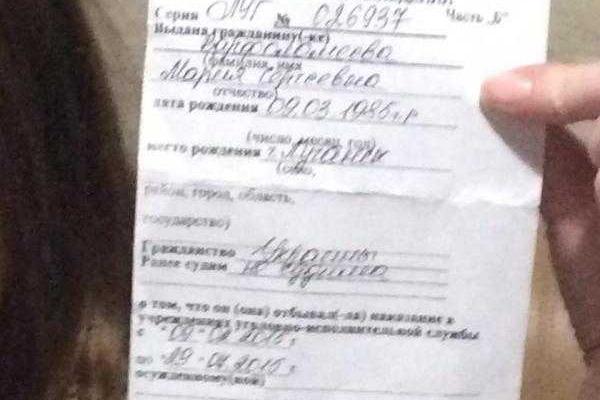 Серия ЛУГ № 026937 Часть „Б"
Выдана гражданину(-ке)
Варфоломеева
(фамилия, имя
Мария Сергеевна
отчество)
дата рождения 09.03.1985 г.р
(число, месяц, год)
место рождения г. Луганск
(село,
район, город, область,
государство)
Гражданство Украины
Ранее судим не судима
о том, что он (она) отбывал(-ла) наказание в
учреждениях уголовно-исполнительной службы
с
по
осужденному(ной)